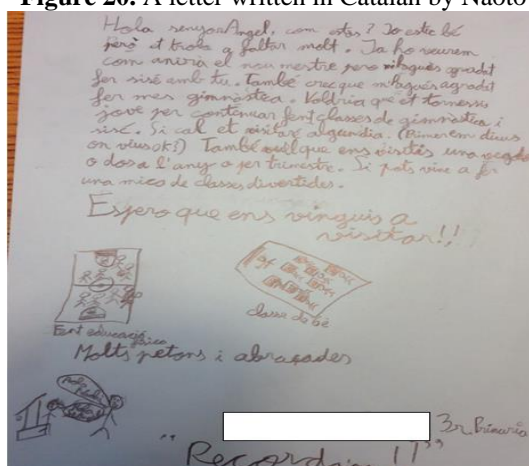 Figure 20. A letter written in Catalan by Naoto
Hola senyor Angel, com estas? Jo estic bé
però et trobo a faltar molt. Ja ho veurem
com anirà el nou mestre pero m'hagués agradat
fer sisè amb tu. També crec que m'hagués agradat
fer mes gimnàstica. Voldria que et tornessis
jove per continuar fent classes de gimnàstica i
sisè. Si cal et visitaré algun dia. (Primer em dius
on vius ok?) També vull que ens visitis una vegada
o dos a l'any o per trimestre. Si pots vine a fer
una mica de classes divertides.
Espero que ens vinguis a
visitar!!
Fent educació física
classe de 6è
Molts petons i abraçades
3r. Primaria
Records